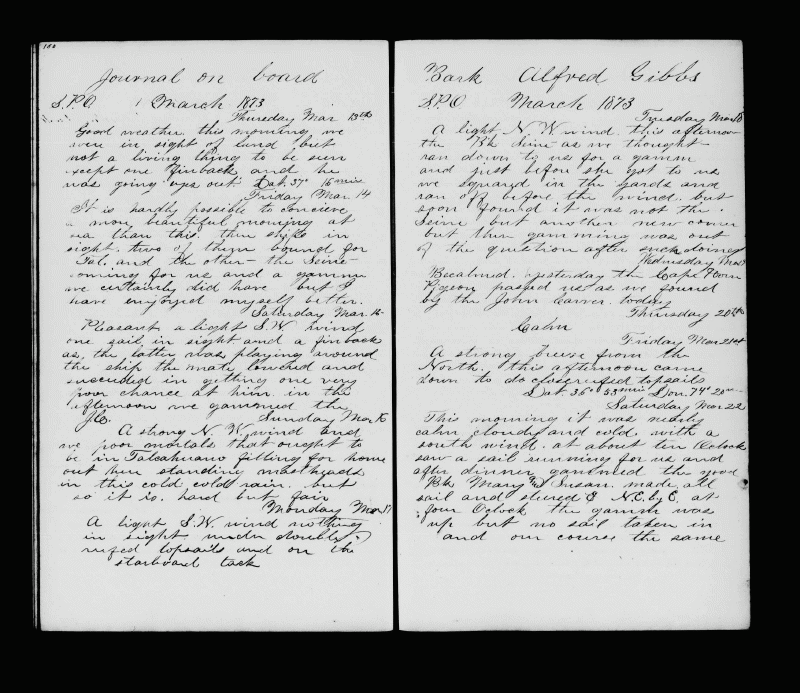 180
Journal on board
S.P.O. March 1873
Thursday Mar 13th
Good weather this morning we
were in sight of land but
not a living thing to be seen
except one finback and he
was going eyes out Lat. 37° 16 min
Friday Mar. 14
It is hardly possible to conceive
a more beautiful morning at
sea than this, three ships in
sight. two of them bound for
Tal. and the other - the Seine -
coming for us and a gamm
we certainly did have but I
have enjoyed myself better.
Saturday Mar. 15
Pleasant a light S.W. wind
one sail in sight and a finback
as, the latter was playing around
the ship the mate lowered and
succeeded in getting one very
poor chance at him. in the
afternoon we gammed the
Sunday Mar 16
A strong N.W. wind and
we poor mortals that ought to
be in Talcahuano fitting for home
out here standing mastheads
in this cold cold rain. but
so it is. hard but fair
Monday Mar 17
A light S.W. wind nothing
in sight under double
reefed topsails and on the
starboard tack
Bark Alfred Gibbs
S.P.O March 1873
Tuesday Mar 18
A light N.W. wind. this afternoon
the Bk Seine as we thought
ran down to us for a gamm
and just before she got to us
we squared in the yards and
ran off before the wind. but
soon found it was not the
Seine but another new comer
but then gamming was out
of the question after such doings
Wednesday Mar 19
Becalmed. yesterday the Cape Horn
Pigeon passed us as we found
by the John Carver. today
Thursday 20th
Calm
Friday Mar 21st
A strong breeze from the
North. this afternoon came
down to do close reefed topsails
Lat 36° 33 min Lon. 74° 20 m
Saturday Mar 22
This morning it was nearly
calm cloudy and cold. with a
south wind. at about ten Oclock
saw a sail running for us and
after dinner gammed the good
Bk Mary & Susan. made all
sail and steered E N.E. by E. at
four Oclock the gamm was
up but no sail taken in
and our course the same